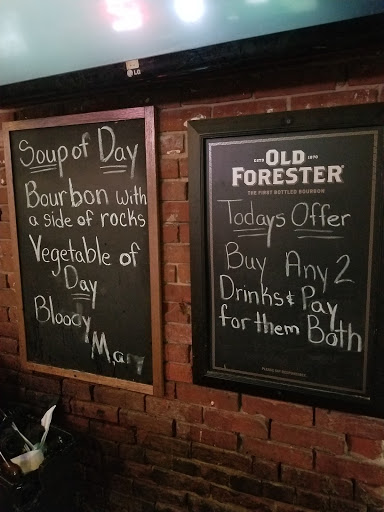 LG
Soup of Day
Bourbon with
a side of rocks
Vegetable of
Day
Bloody
Mary
ESTD 1870
OLD
FORESTER
THE FIRST BOTTLED BOURBON
Todays Offer
Buy Any 2
Drinks & Pay
for them Both